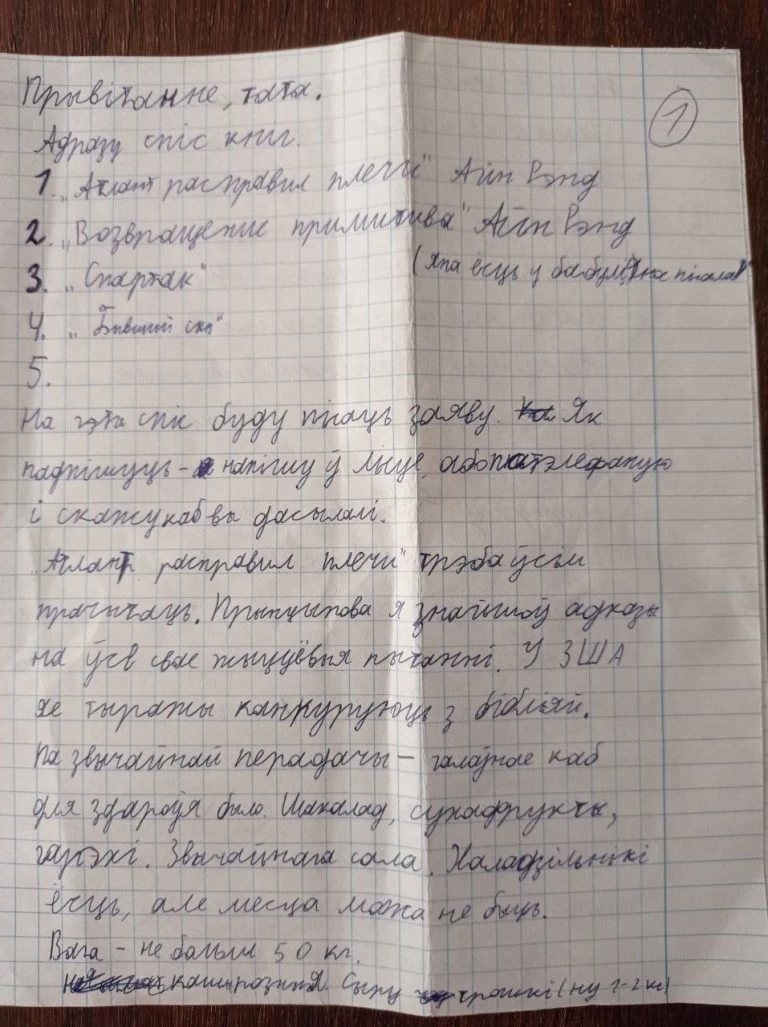 Прывітанне, тата.
1
Адразу спіс кніг.
1. „Атлант расправил плечи" Айн Рэнд
2. „Возвращение примитива" Айн Рэнд
3. „Спартак"
(яна ёсць у бабулі, на
4. „Бывший
5.
На гэты спіс буду пісаць заяву. Як
падпішуць - напішу ў лісце, або патэлефаную
і скажу каб вы дасылалі.
„Атлант расправил плечи" трэба ўсім
прачытаць. Прынцыпова я знайшоў адказы
на ўсе свае жыццёвыя пытанні. У ЗША
яе тыражы канкуруюць з бібліяй.
Па звычайнай перадачы – галаўнае каб
для здароўя было. Шакалад, сухафрукты,
гарэхі. Звычайнага сала. Халадзільнікі
ёсць, але месца можа не быць.
Вага – не больш 50 кг.
каши розныя. Сыру трошкі (ну 1-2 кг)